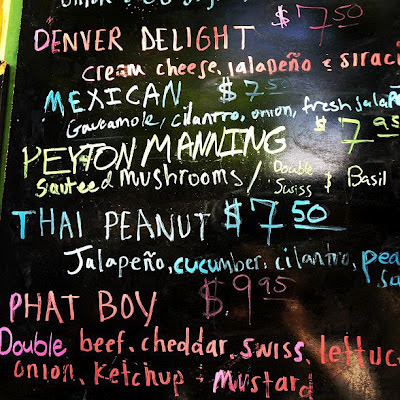 $7.50
DENVER DELIGHT
cream cheese, jalapeño &
MEXICAN $7.5
Gaucamole, cilantro, onion, fresh
PEYTON MANNING $7.95
Sauteed Mushrooms / Double Swiss & Basil
THAI PEANUT $7.50
Jalapeño, cucumber, cilantro, pea
PHAT BOY $9.95
Double beef, cheddar, swiss, lettuc
onion, Ketchup + Mustard